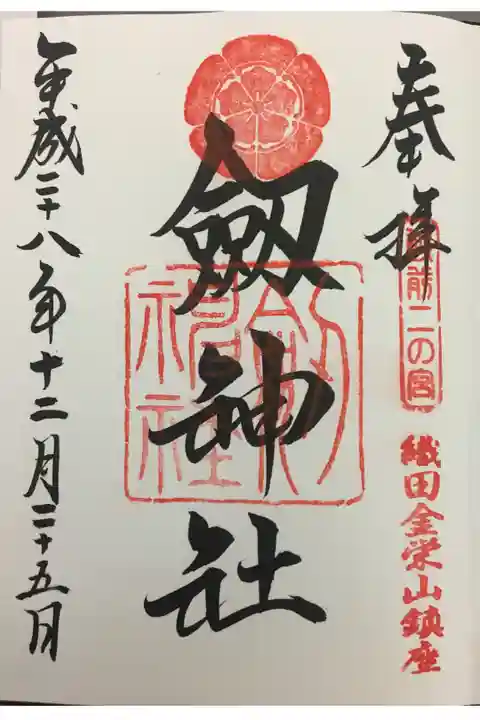 奉拝
越前二の宮
織田金栄山鎮座
劔神社
劔神社
平成二十八年十二月二十五日